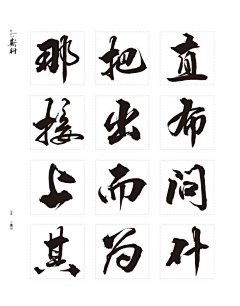 那 把 直
接 出 布
上 而 问
其 为 什